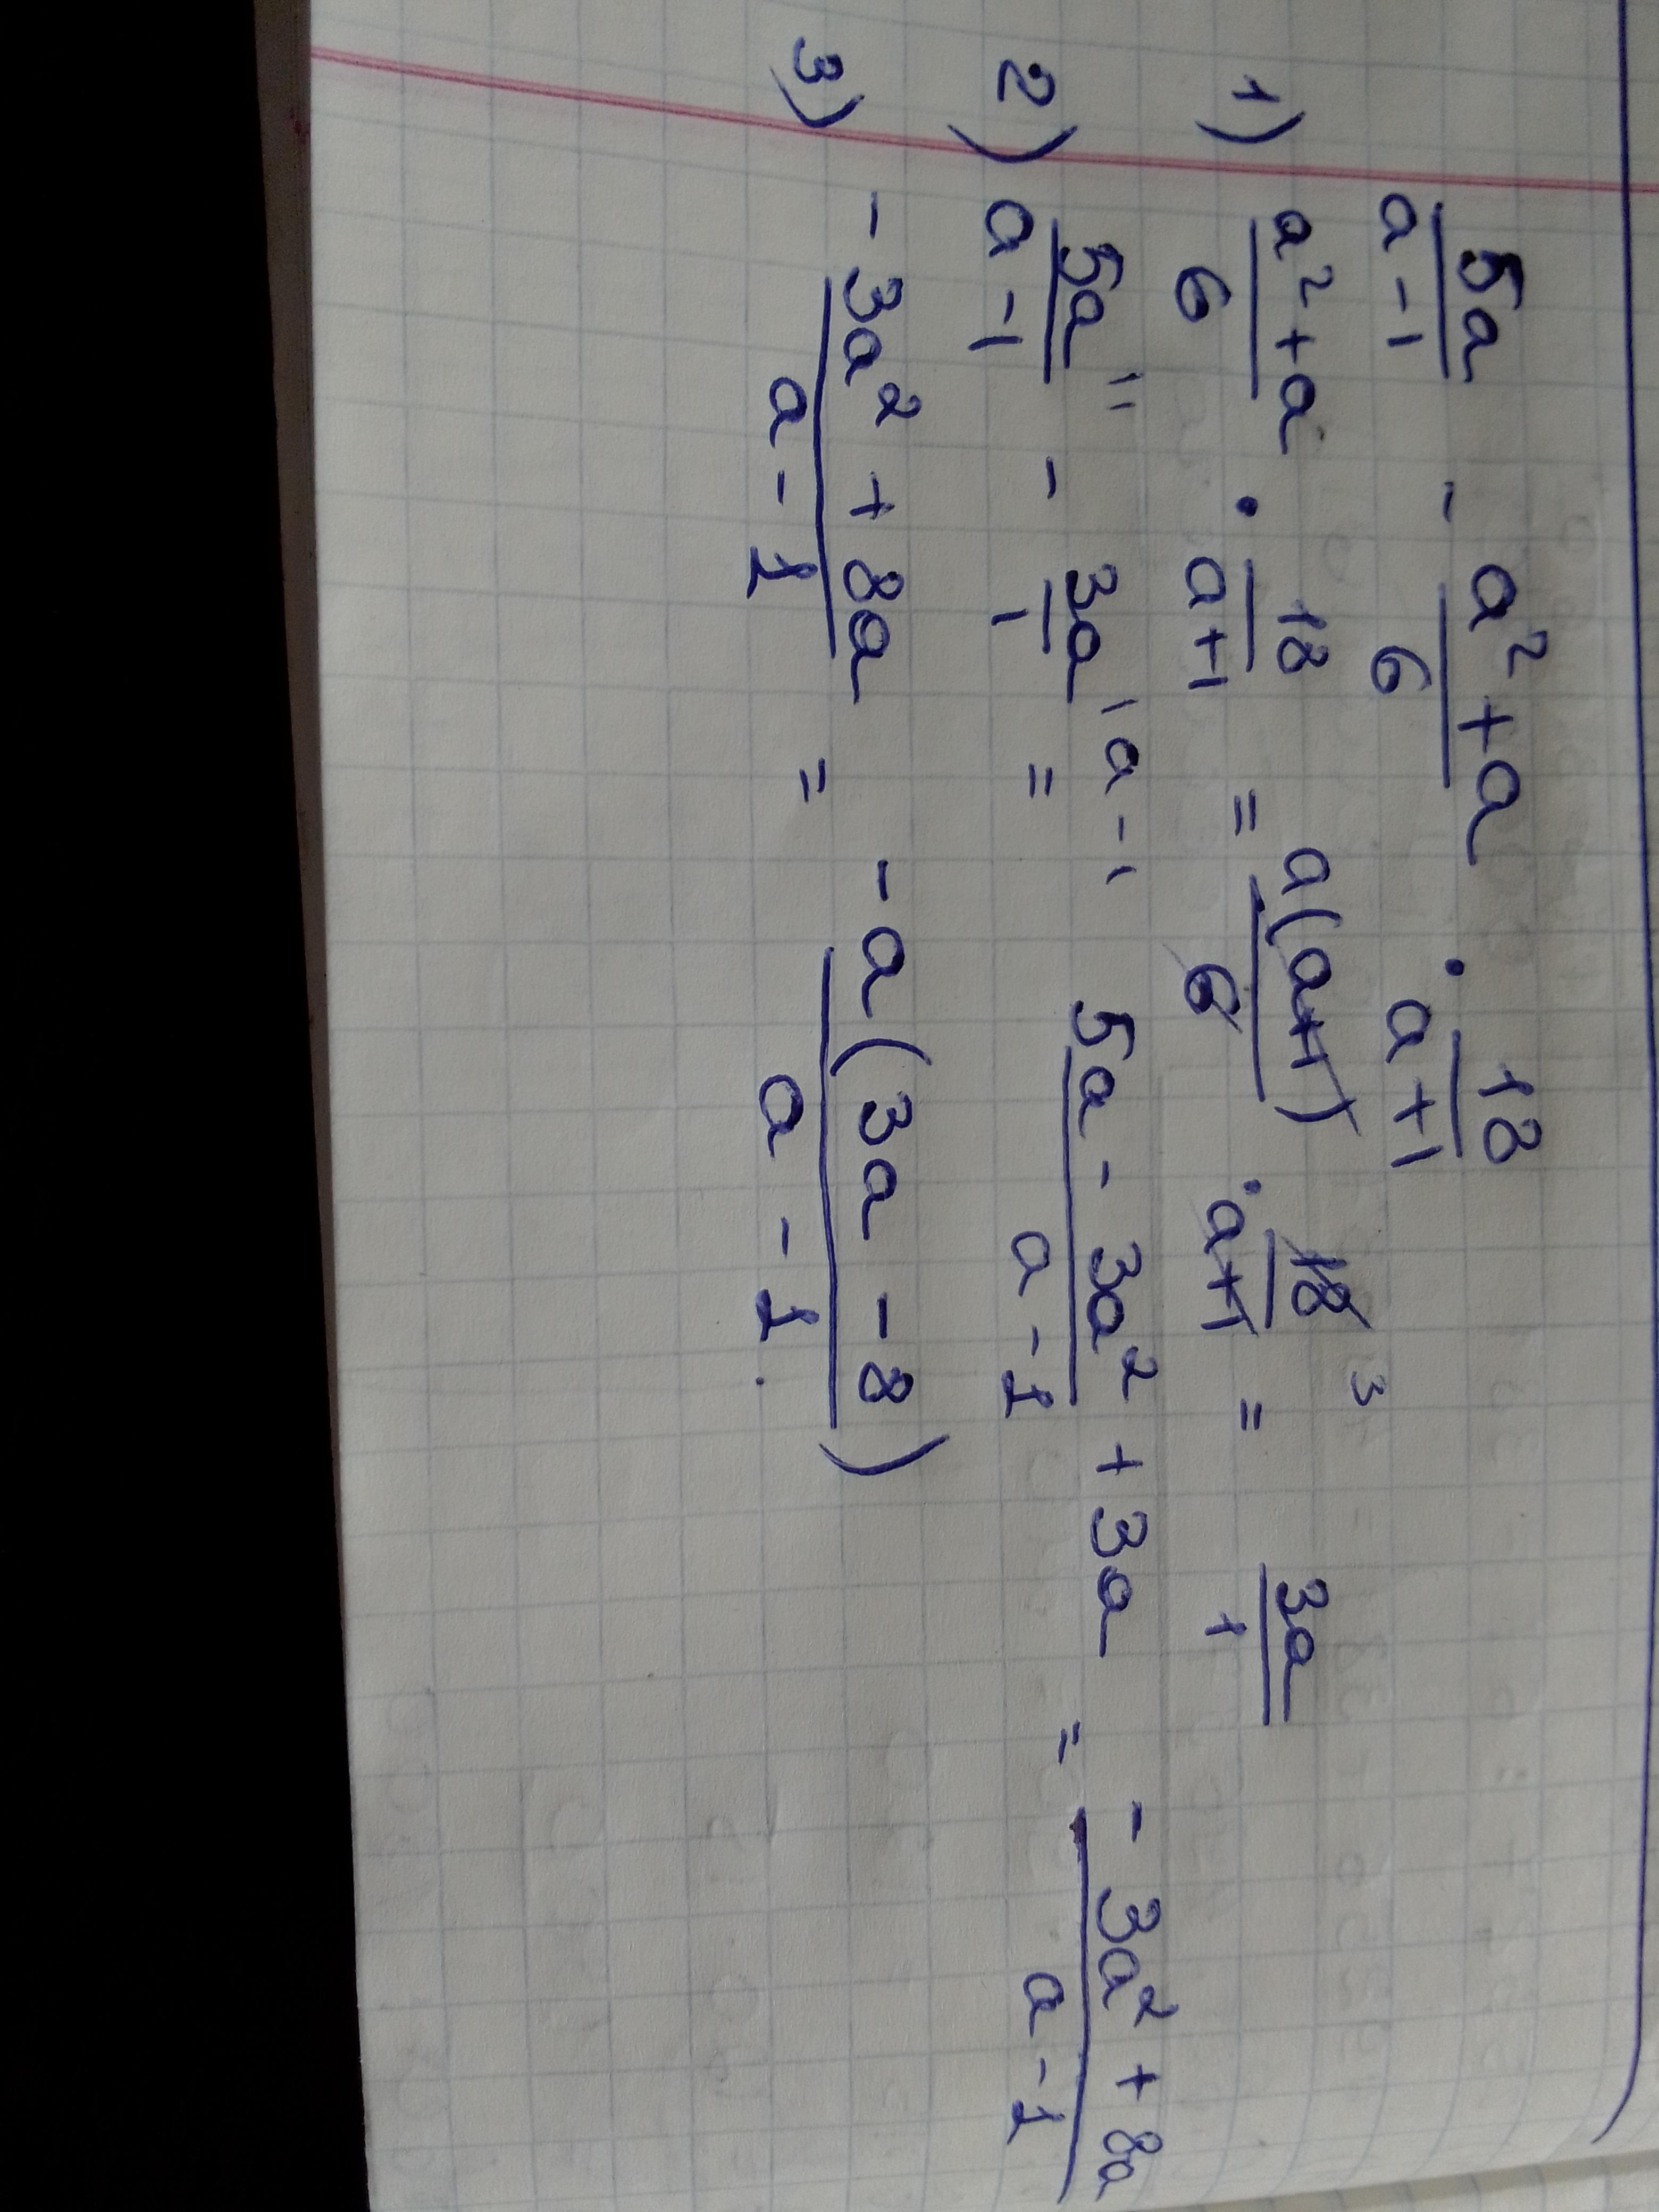 5a/(a-1) - (a²+a)/6 · 18/(a+1)
1) (a²+a)/6 · 18/(a+1) = a(a+1)/6 · 18/(a+1) ³ = 3a/1
2) 5a/(a-1) ^(1) - 3a/1 ^(a-1) = (5a - 3a² + 3a)/(a-1) = (-3a² + 8a)/(a-1)
3) (-3a² + 8a)/(a-1) = -a(3a - 8)/(a-1).